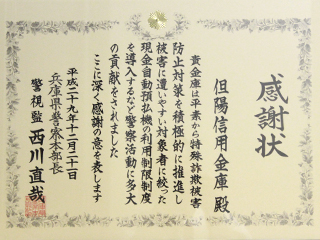 感謝状
但陽信用金庫 殿
貴金庫は平素から特殊詐欺被害
防止対策を積極的に推進し
被害に遭いやすい対象者に絞った
現金自動預払機の利用制限制度
を導入するなど警察活動に多大
の貢献をされました
ここに深く感謝の意を表します
平成二十九年十二月二十日
兵庫県警察本部長
警視監 西川直哉